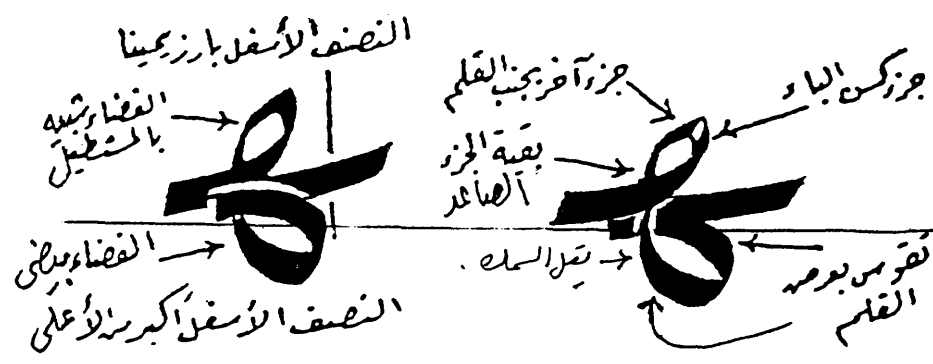 النصف الأسفل بارز يمينا
الفضاء شبيه
بالمستطيل
الفضاء بيضي
النصف الأسفل أكبر من الأعلى
جزء كسن الباء
جزء آخر بجنب القلم
بقية الجزء
الصاعد
يقل السمك .
تقوس بعرض
القلم